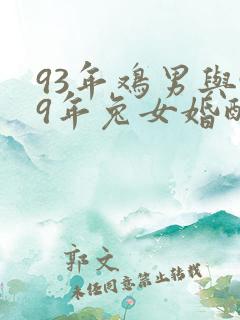 93年鸡男與
9年兔女婚配
郭文
未任同意禁止转载